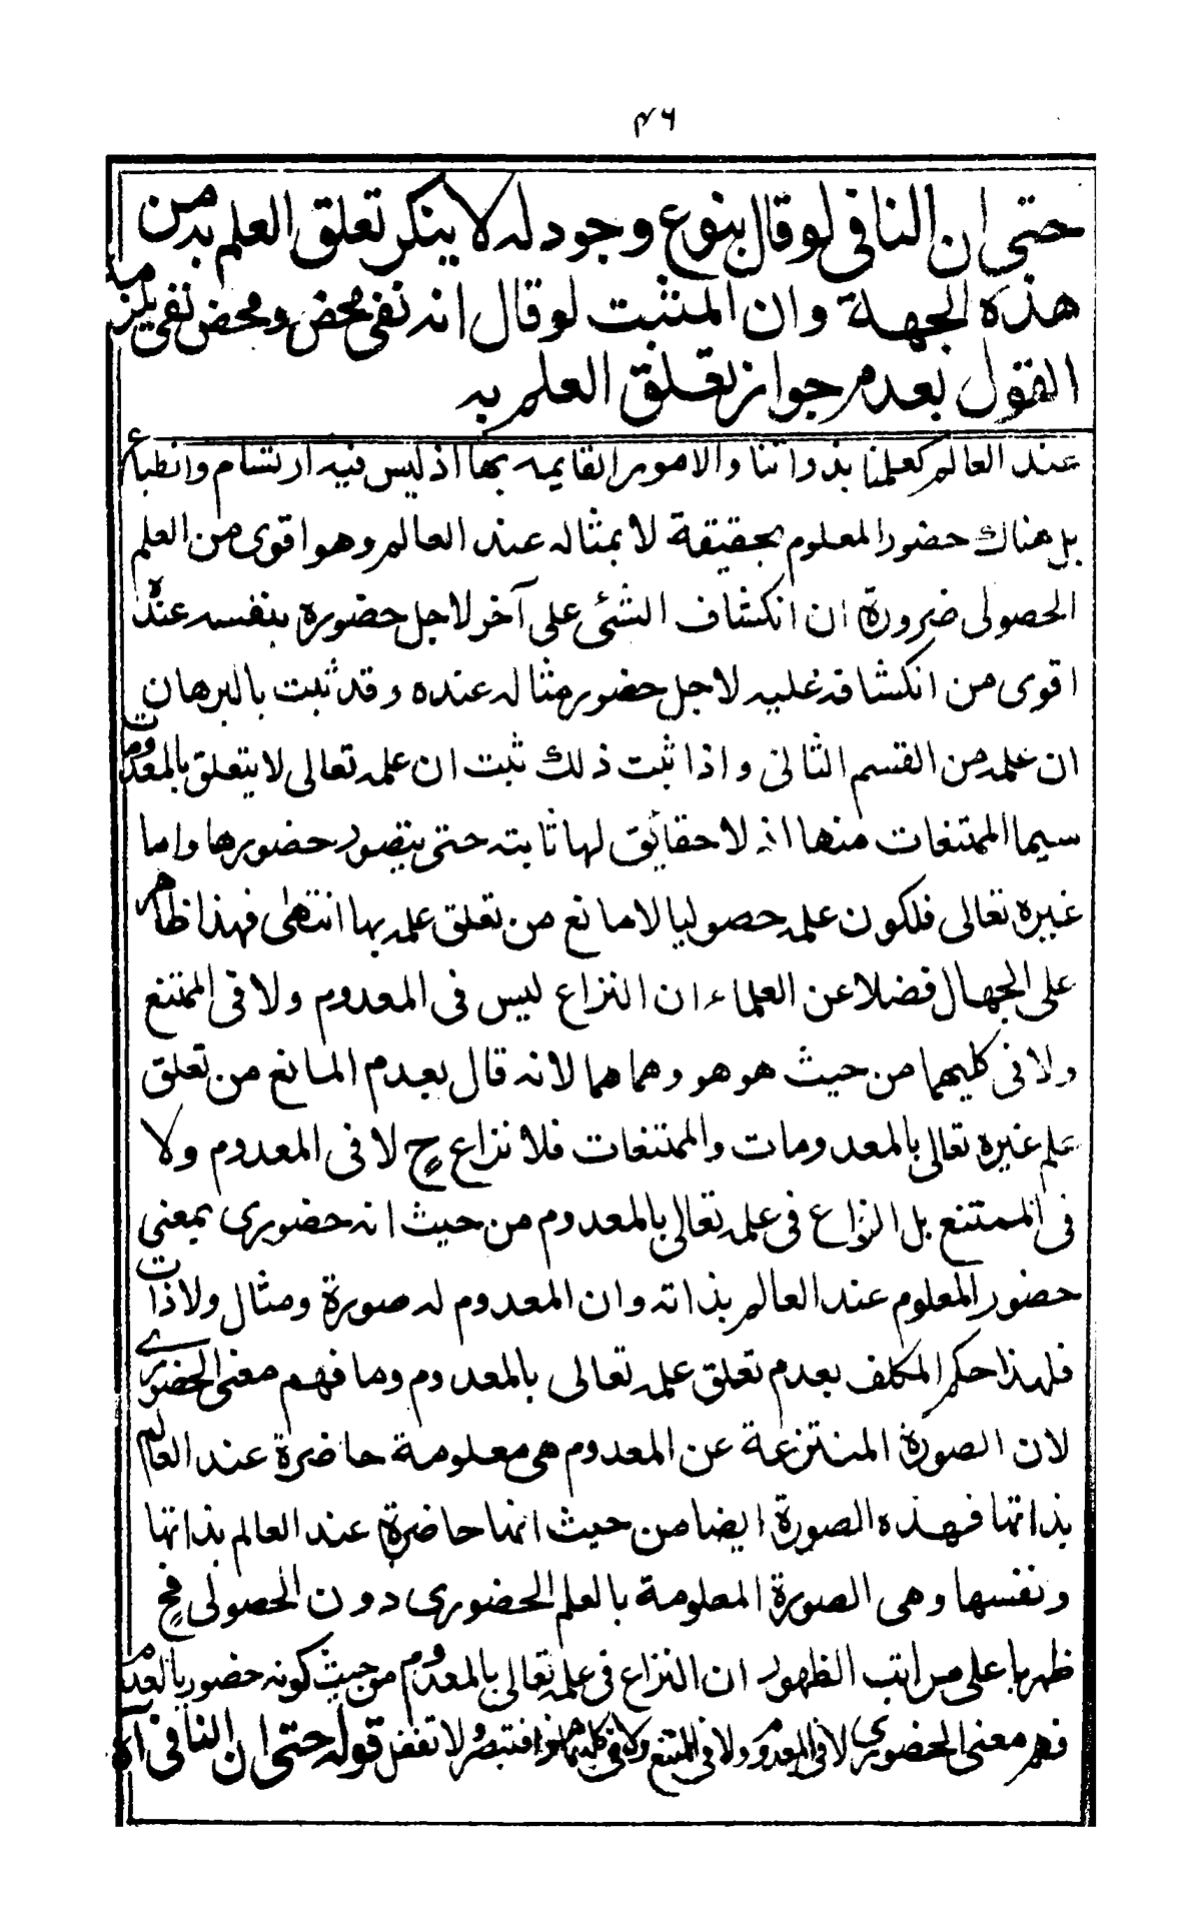 ٤٦
حتى ان النافى لو قال بنوع وجود له لا ينكر تعلق العلم به من
هذه الجهة وان المثبت لو قال انه نفى محض ومحض نفى يلزمه
القول بعدم جواز تعلق العلم به
عند العالم كعلمنا بذواتنا والامور القايمه بها اذ ليس فيه ارتسام وانطباع
بل هناك حضور المعلوم بحقيقة لا بمثاله عند العالم وهو اقوى من العلم
الحصولى ضرورة ان انكشاف الشئ على آخر لاجل حضوره بنفسه عنده
اقوى من انكشافه عليه لاجل حضور مثاله عنده وقد ثبت بالبرهان
ان علمه من القسم الثانى واذا ثبت ذلك ثبت ان علمه تعالى لا يتعلق بالمعدومات
سيما الممتنعات منها اذ لا حقائق لها ثابته حتى يتصور حضورها واما
غيره تعالى فلكون علمه حصوليا لا مانع من تعلق علمه بها انتهى فهذا ظاهر
على الجهال فضلا عن العلماء ان النزاع ليس فى المعدوم ولا فى الممتنع
ولا فى كليهما من حيث هو هو وهما هما لانه قال بعدم المانع من تعلق
علم غيره تعالى بالمعدومات والممتنعات فلا نزاع ح لا فى المعدوم ولا
فى الممتنع بل النزاع فى علمه تعالى بالمعدوم من حيث انه حضورى بمعنى
حضور المعلوم عند العالم بذاته وان المعدوم له صورة ومثال ولا ذات
فلهذا حكم المكلف بعدم تعلق علمه تعالى بالمعدوم وما فهم معنى الحضورى
لان الصورة المنتزعة عن المعدوم هى معلومة حاضرة عند العالم
بذاتها فهذه الصورة ايضا من حيث انها حاضرة عند العالم بذاتها
ونفسها وهى الصورة المعلومة بالعلم الحضورى دون الحصولى فح
ظهر باعلى مراتب الظهور ان النزاع فى علمه تعالى بالمعدوم من حيث كونه حضوريا لعدم
فهم معنى الحضورى لا فى المعدوم ولا فى الممتنع ولا فى كليهما فتبصر ولا تغفل قوله حتى ان النافى آه